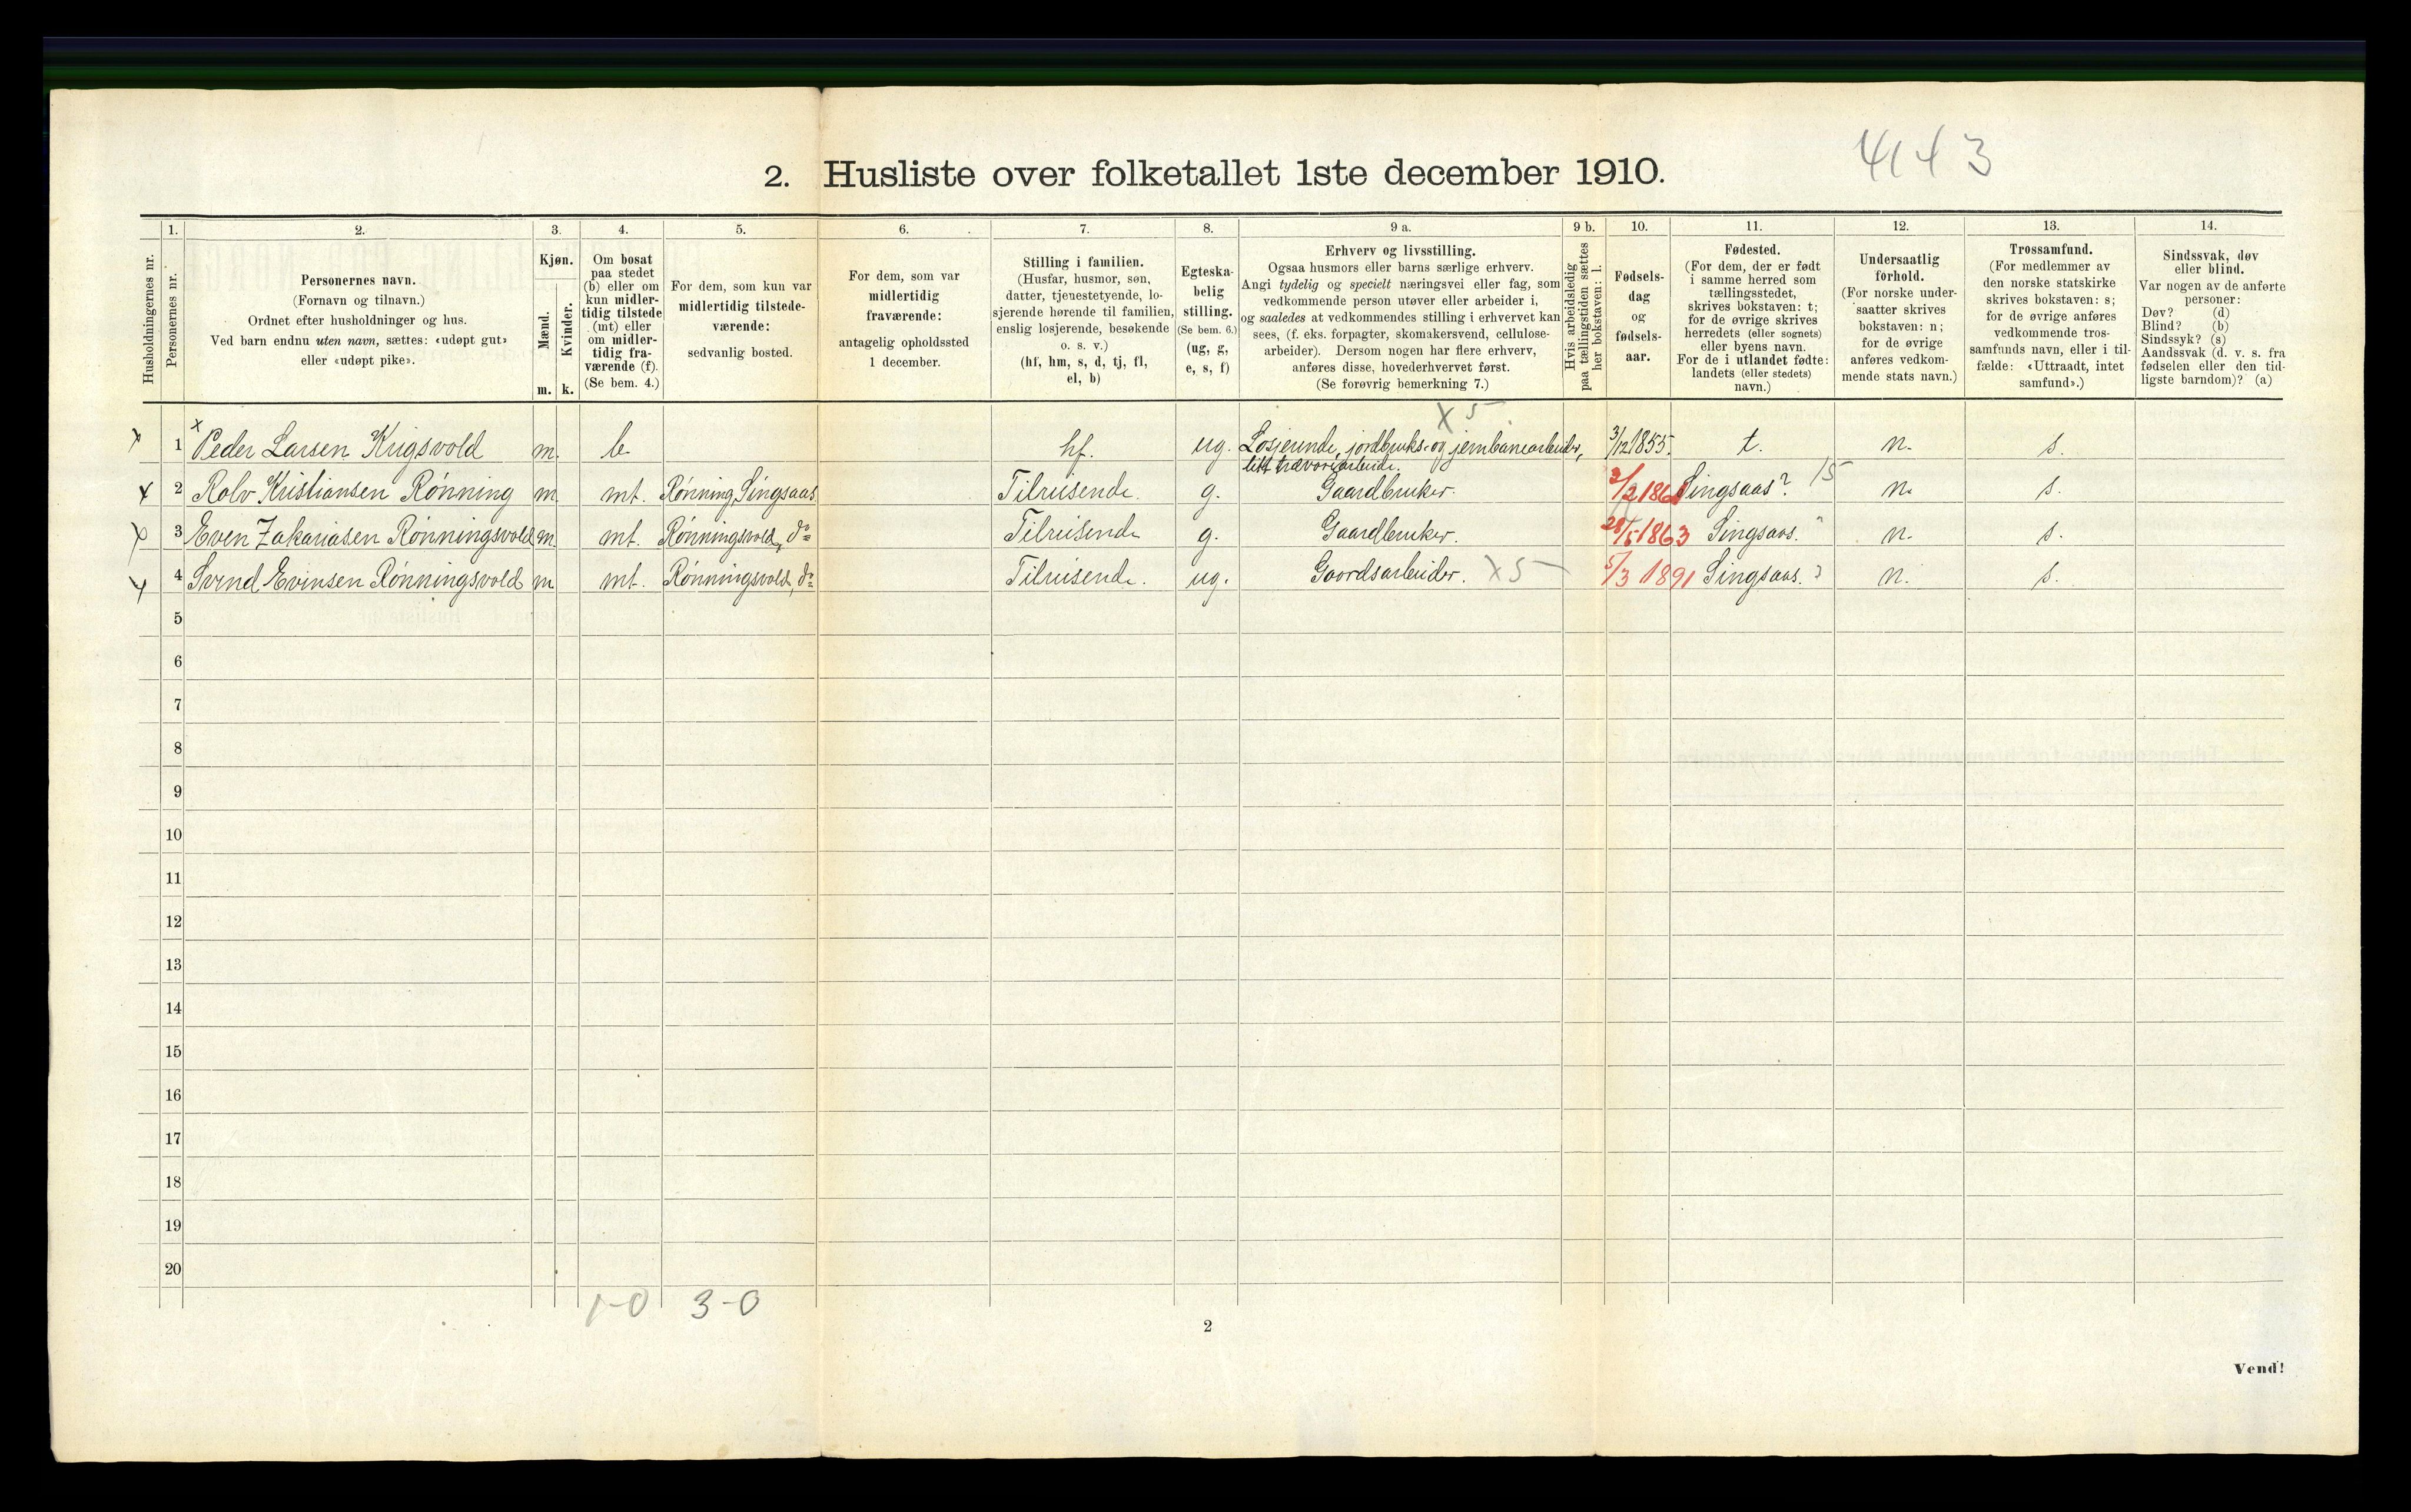 4143
2. Husliste over folketallet 1ste december 1910.
Husholdningernes nr.
1.
Personernes nr.
2.
Personernes navn.
(Fornavn og tilnavn.)
Ordnet efter husholdninger og hus.
Ved barn endnu uten navn, sættes: «udøpt gut»
eller «udøpt pike».
3.
Kjøn.
Mænd.
Kvinder.
m. k.
4.
Om bosat
paa stedet
(b) eller om
kun midler-
tidig tilstede
(mt) eller
om midler-
tidig fra-
værende (f).
(Se bem. 4.)
5.
For dem, som kun var
midlertidig tilstede-
værende:
sedvanlig bosted.
6.
For dem, som var
midlertidig
fraværende:
antagelig opholdssted
1 december.
7.
Stilling i familien.
(Husfar, husmor, søn,
datter, tjenestetyende, lo-
sjerende hørende til familien,
enslig losjerende, besøkende
o. s. v.)
(hf, hm, s, d, tj, fl,
el, b)
8.
Egteska-
belig
stilling.
(Se bem. 6.)
(ug, g,
e, s, f)
9 a.
Erhverv og livsstilling.
Ogsaa husmors eller barns særlige erhverv.
Angi tydelig og specielt næringsvei eller fag, som
vedkommende person utøver eller arbeider i,
og saaledes at vedkommendes stilling i erhvervet kan
sees, (f. eks. forpagter, skomakersvend, cellulose-
arbeider). Dersom nogen har flere erhverv,
anføres disse, hovederhvervet først.
(Se forøvrig bemerkning 7.)
9 b.
Hvis arbeidsledig
paa tællingstiden sættes
her bokstaven: l.
10.
Fødsels-
dag
og
fødsels-
aar.
11.
Fødested.
(For dem, der er født
i samme herred som
tællingsstedet,
skrives bokstaven: t;
for de øvrige skrives
herredets (eller sognets)
eller byens navn.
For de i utlandet fødte:
landets (eller stedets)
navn.)
12.
Undersaatlig
forhold.
(For norske under-
saatter skrives
bokstaven: n;
for de øvrige
anføres vedkom-
mende stats navn.)
13.
Trossamfund.
(For medlemmer av
den norske statskirke
skrives bokstaven: s;
for de øvrige anføres
vedkommende tros-
samfunds navn, eller i til-
fælde: «Uttraadt, intet
samfund».)
14.
Sindssvak, døv
eller blind.
Var nogen av de anførte
personer:
Døv? (d)
Blind? (b)
Sindssyk? (s)
Aandssvak (d. v. s. fra
fødselen eller den tid-
ligste barndom)? (a)
X 5
x 1 x Peder Larsen Krigsvold m. b. hf. ug. Losjerende, jordbruks- og jernbanearbeider, 3/12 1855. t. n. s.
litt trævarearbeide.
x 2 Rolv Kristiansen Rønning m. mt. Rønning, Singsaas Tilreisende. g. Gaardbruker. Singsaas? 15 n. s.
x 3 Even Zakariasen Rønningsvold m. mt. Rønningsvold, do Tilreisende g. Gaardbruker. 28/5 1863 Singsaas. n. s.
x 4 Svend Evensen Rønningsvold m mt. Rønningsvold, do Tilreisende. ug. Gaardsarbeider. X5 5/3 1891 Singsaas. n. s.
5
6
7
8
9
10
11
12
13
14
15
16
17
18
19
20
1-0 3-0
2
Vend!